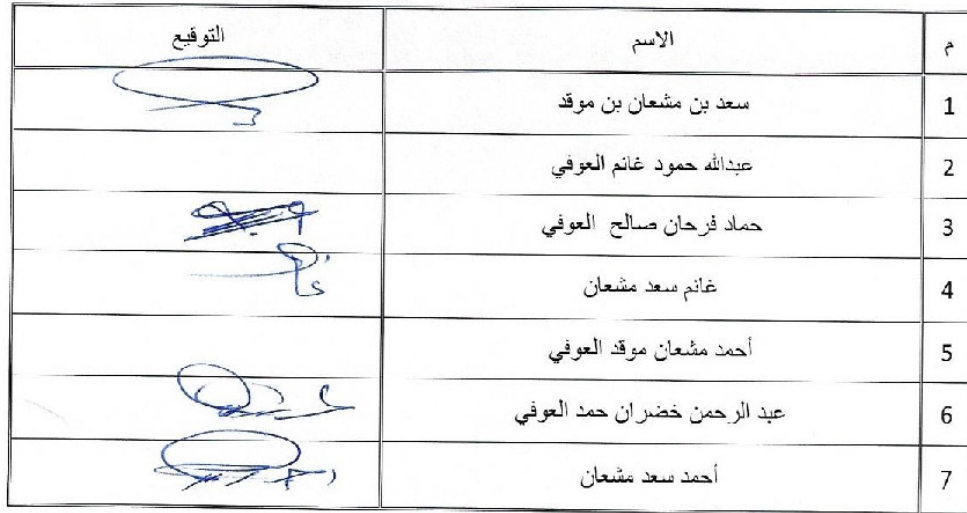 م الاسم التوقيع
1 سعد بن مشعان بن موقد
2 عبدالله حمود غانم العوفي
3 حماد فرحان صالح العوفي
4 غانم سعد مشعان
5 أحمد مشعان موقد العوفي
6 عبد الرحمن خضران حمد العوفي
7 أحمد سعد مشعان